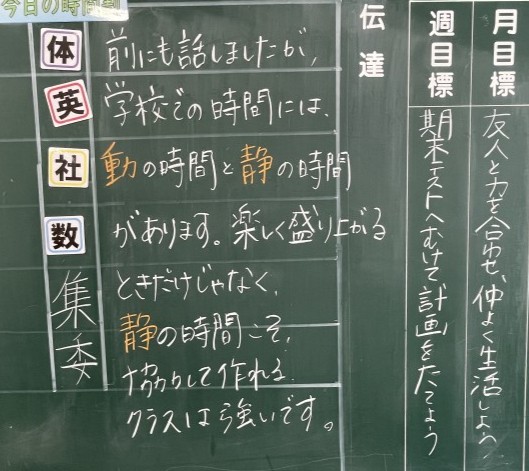 月目標
友人と力を合わせ、仲よく生活しよう
週目標
期末テストへむけて計画をたてよう
伝達
今日の時間割
体
英
社
数
集委
前にも話しましたが、
学校での時間には、
動の時間と静の時間
があります。楽しく盛り上がる
ときだけじゃなく、
静の時間こそ、
協力して作れる
クラスは強いです。